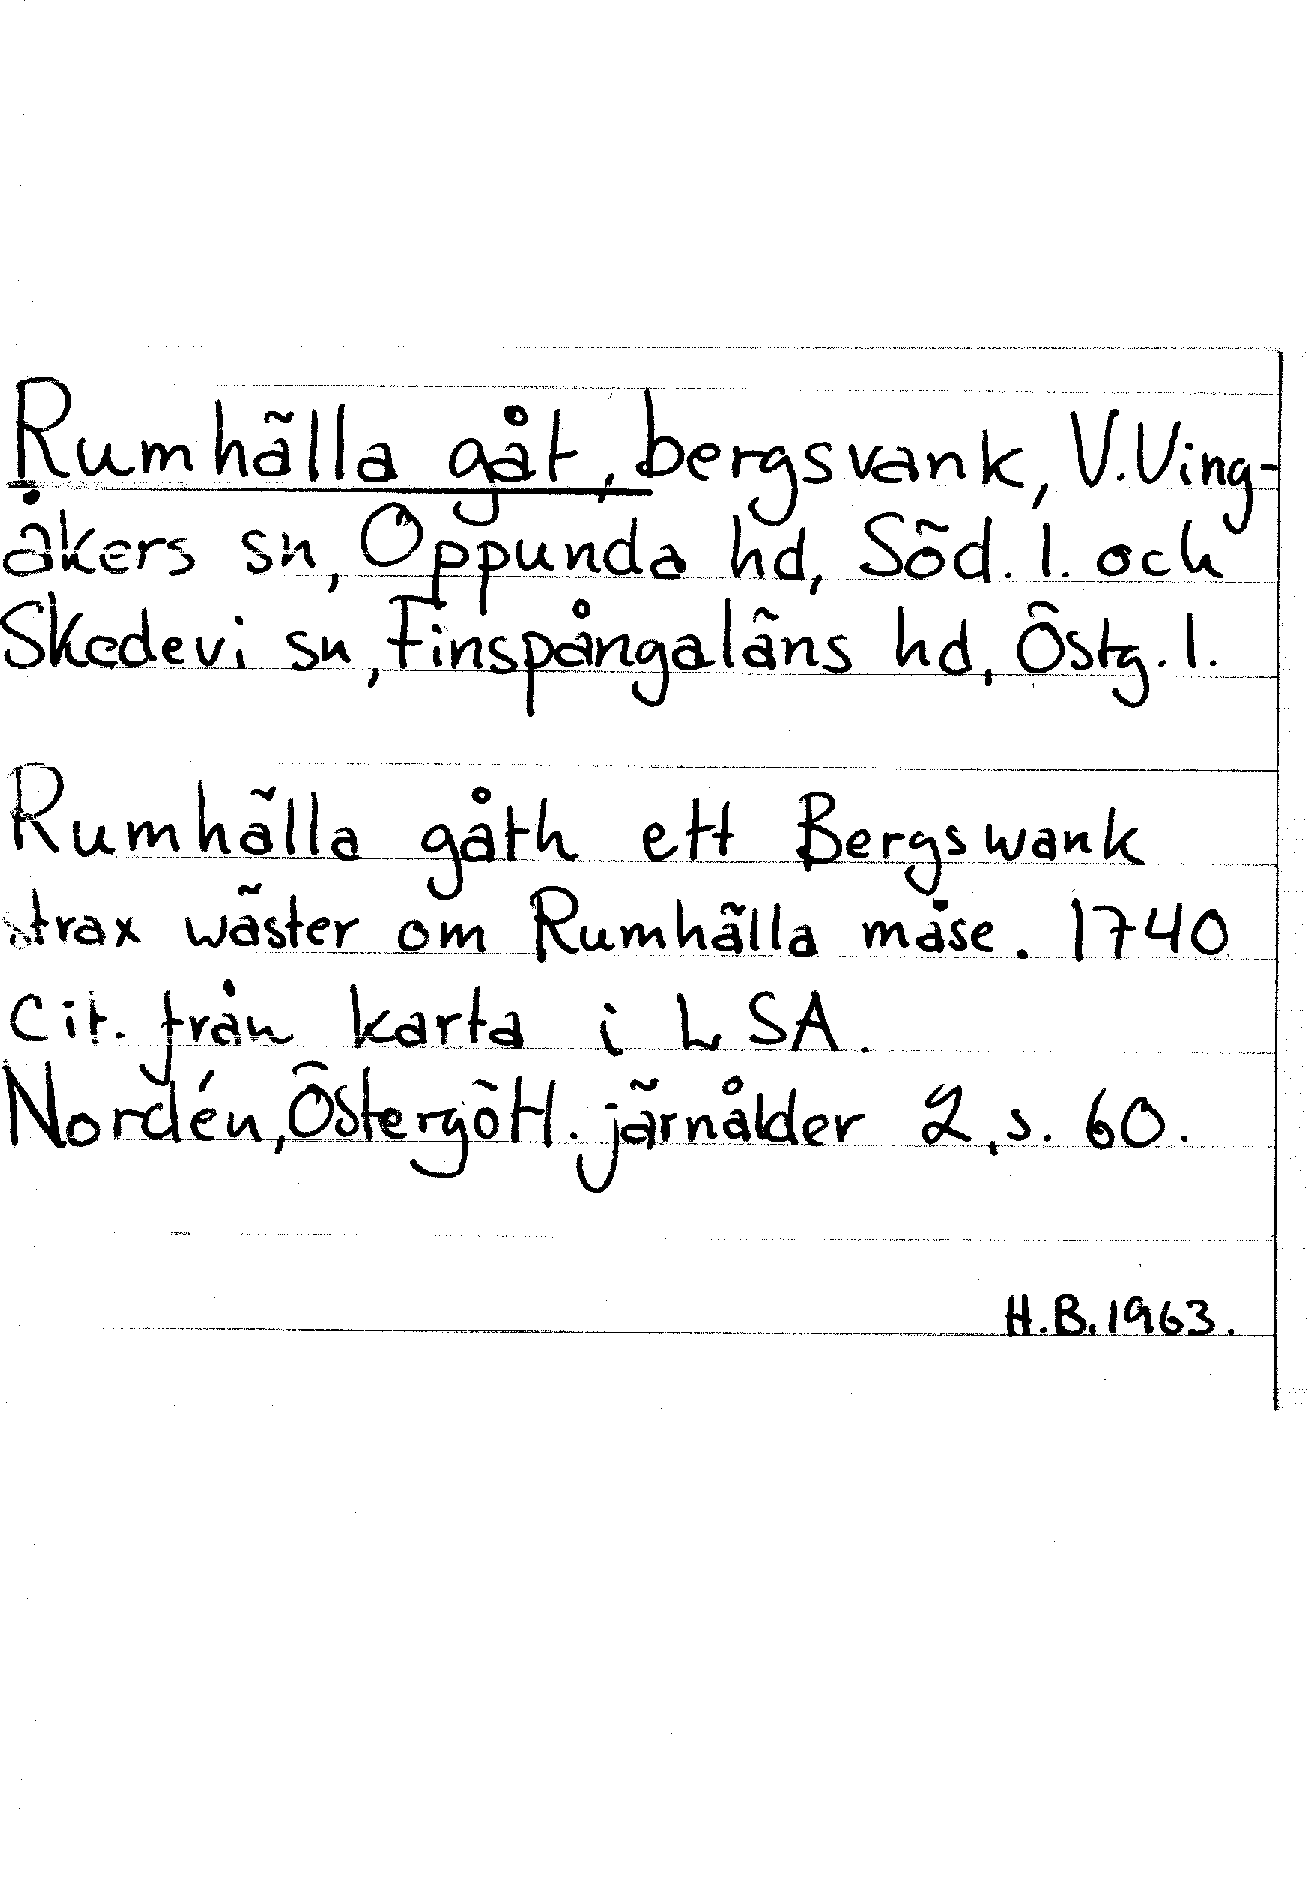 Rumhälla gåt, bergsvank, V. Ving-
åkers sn, Oppunda hd, Söd. l. och
Skedevi sn, Finspångaläns hd, Östg. l.
Rumhälla gåth ett Bergswank
strax wäster om Rumhälla måse. 1740
Cit. från karta i LSA.
Nordén, Östergötl. järnålder 2, s. 60.
H.B. 1963.